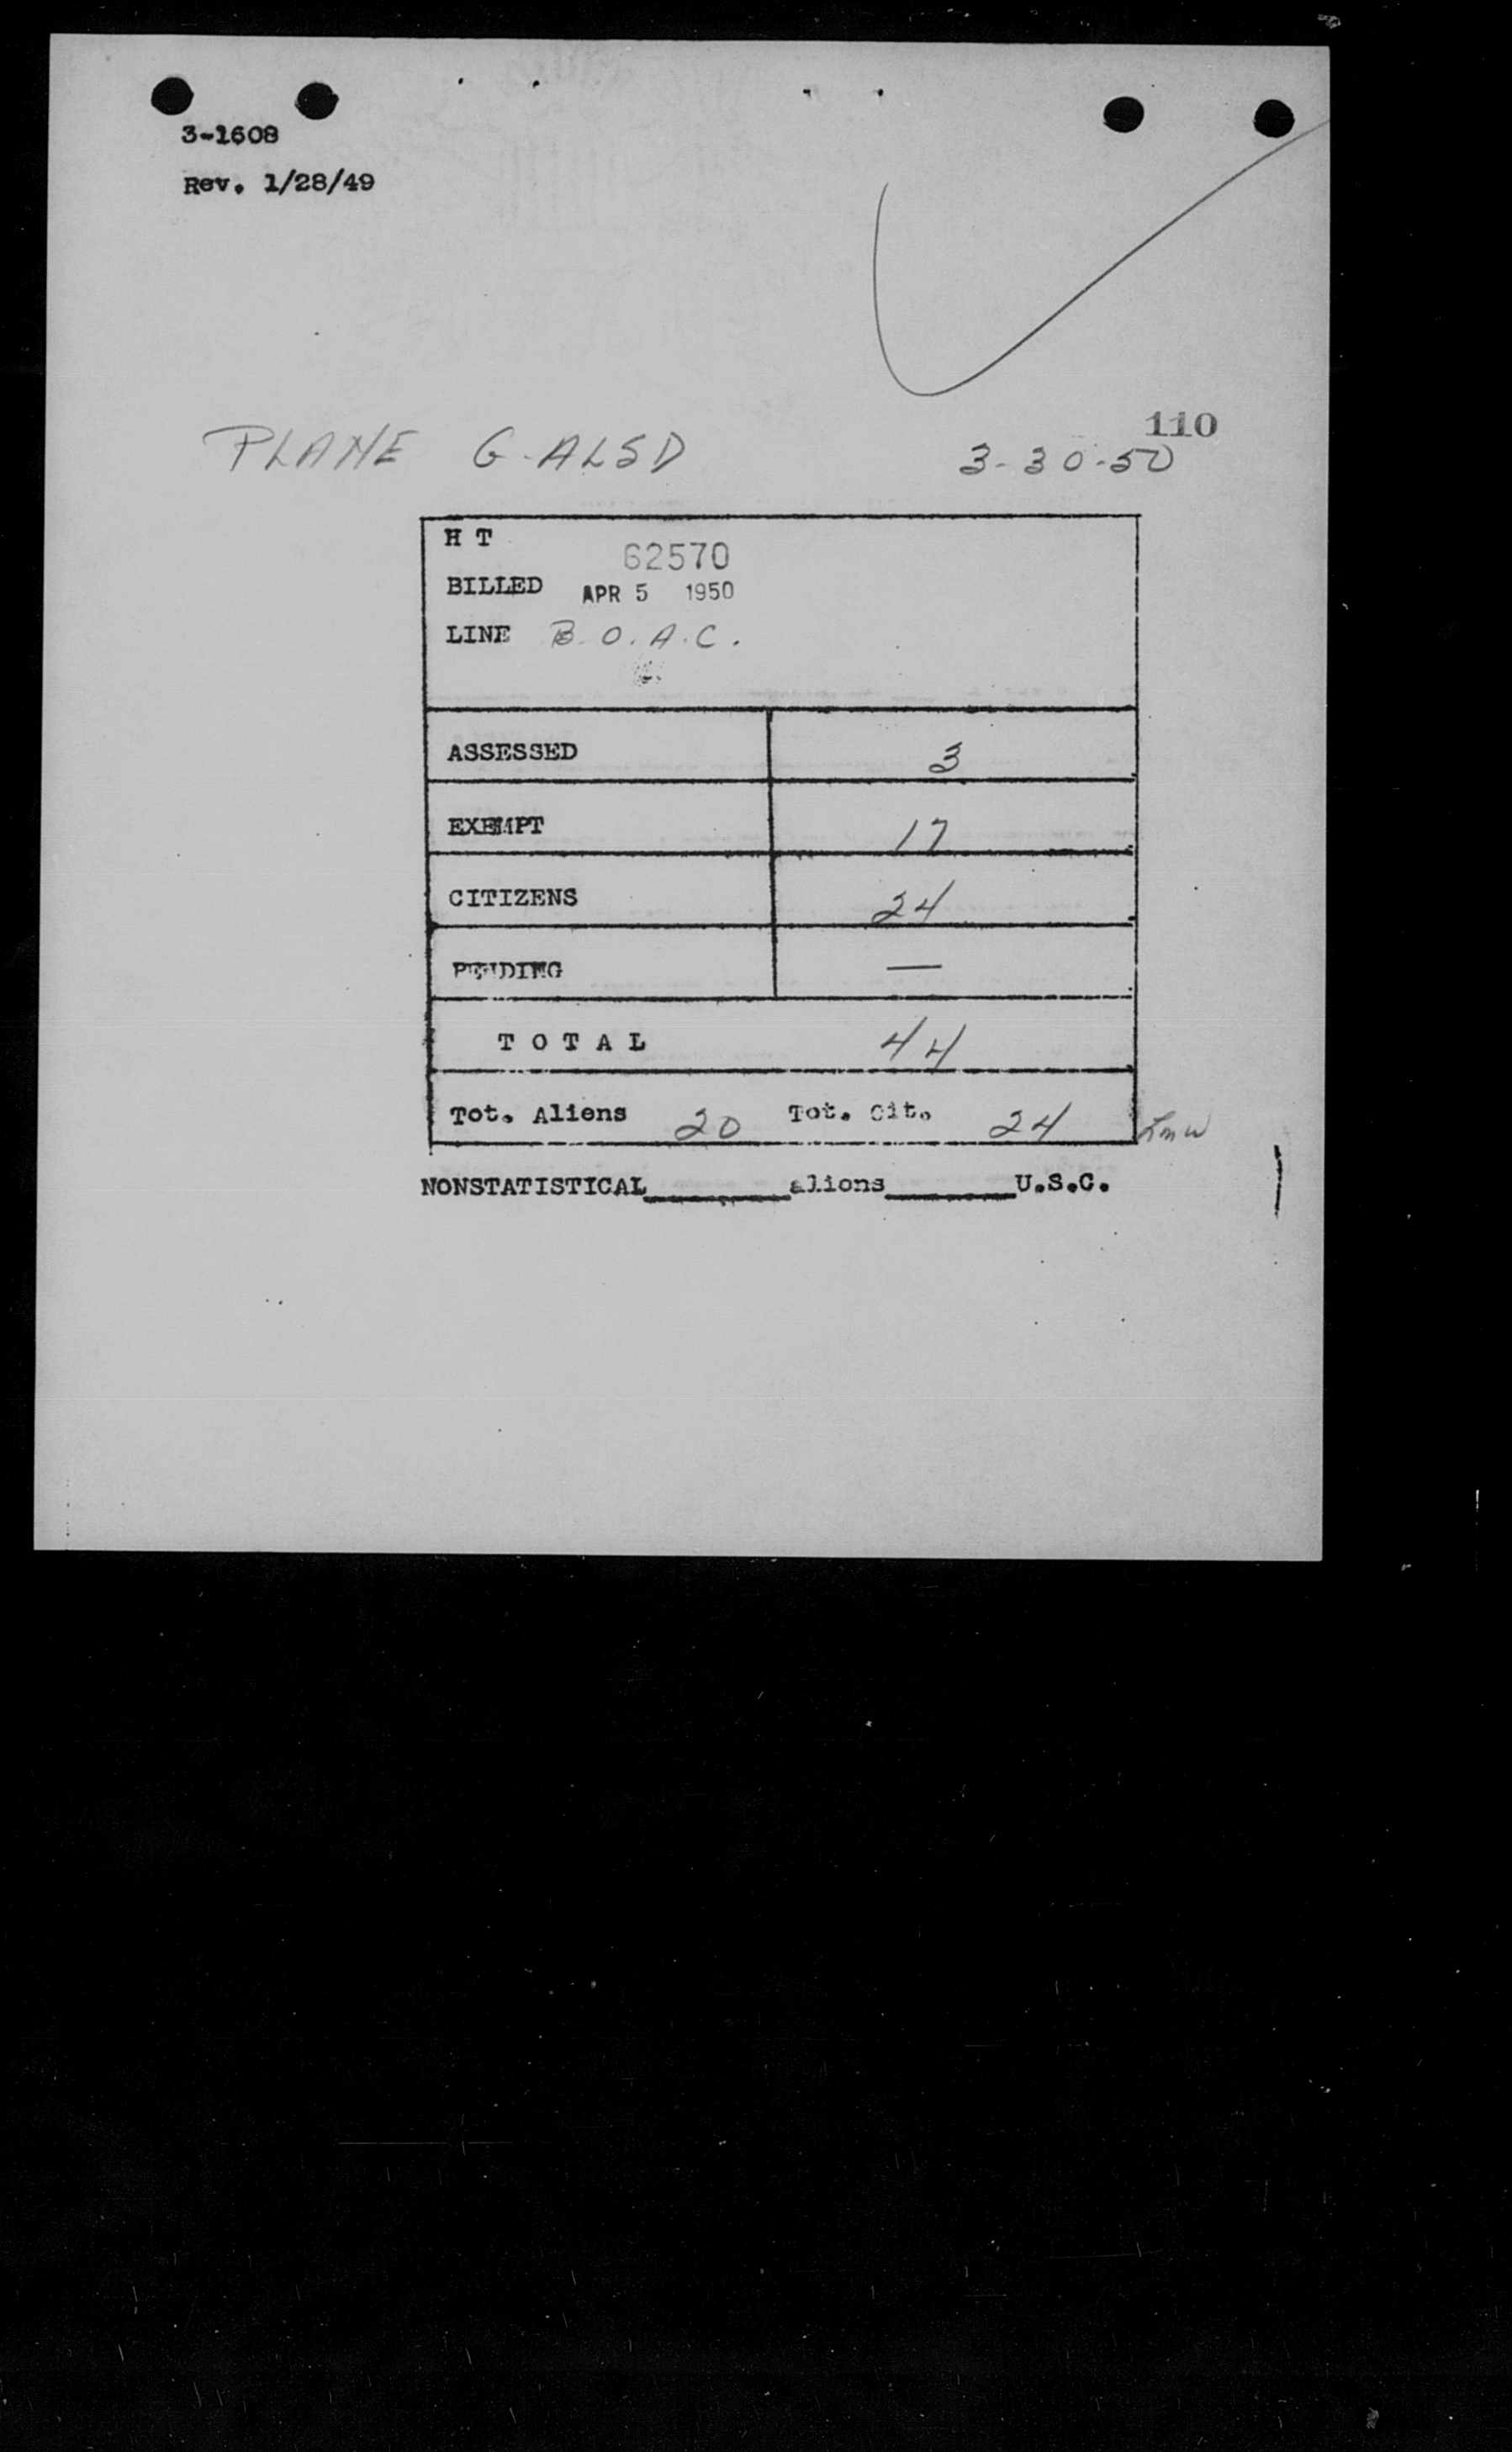 3-1608
Rev. 1/28/49
110
PLANE G-ALSD 3-30-50
H T 62570
BILLED APR 5 1950
LINE B.O.A.C.
ASSESSED 3
EXEMPT 17
CITIZENS 24
PENDING —
T O T A L 44
Tot. Aliens 20 Tot. Cit. 24 Lmw
NONSTATISTICAL________aliens_______U.S.C.